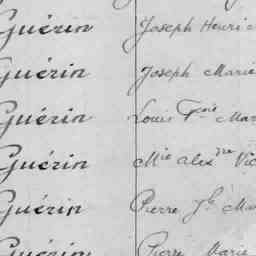 Guérin Joseph Henri
Guérin Joseph Marie
Guérin Louis Fois Mar
Guérin Mie Alexdre Vic
Guérin Pierre Jh Ma
Guérin Pierre Marie